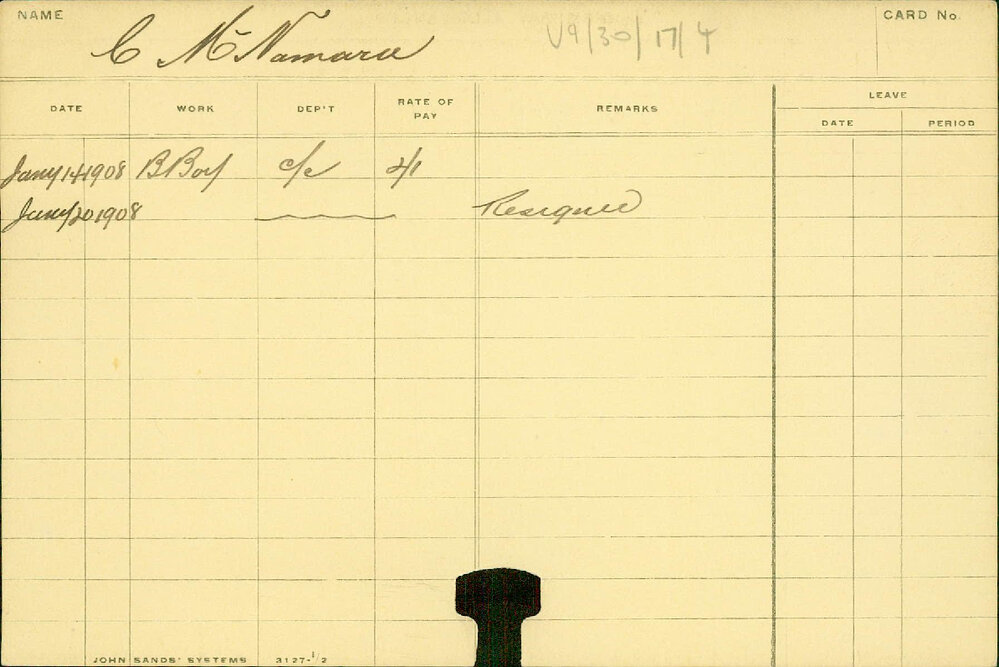 NAME
C McNamara
V9/30/17/4
CARD No.
DATE WORK DEP'T RATE OF PAY REMARKS LEAVE
DATE PERIOD
Jany 14 1908 B Boy c/c 4/1
Jany 20 1908 Resigned
JOHN SANDS' SYSTEMS 3127-1/2